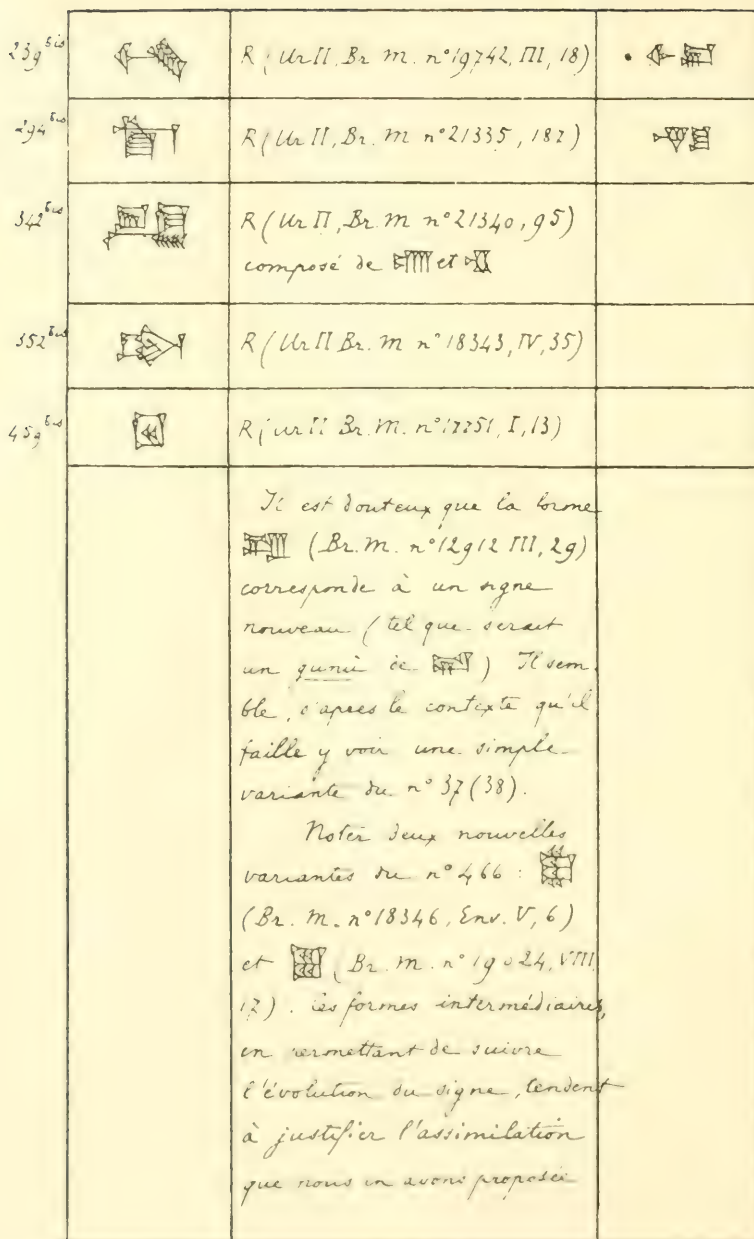 239 bis R (Ur II, Br. M. n° 19742, III, 18)
294 bis R (Ur II, Br. M n° 21335, 182)
342 bis R (Ur II, Br. M n° 21340, 95)
composé de et
352 bis R (Ur II Br. M n° 18343, IV, 35)
459 bis R (Ur II Br. M. n° , I, 13)
Il est douteux que la forme
(Br. M. n° 12912 III, 29)
corresponde à un signe
nouveau (tel que serait
un gunû de ) Il sem-
ble, d'après le contexte qu'il
faille y voir une simple
variante du n° 37 (38).
Noter deux nouvelles
variantes du n° 466 :
(Br. M. n° 18346, Env. V, 6)
et (Br. M. n° 19024, VIII,
17). Ces formes intermédiaires,
en permettant de suivre
l'évolution du signe, tendent
à justifier l'assimilation
que nous en avons proposée